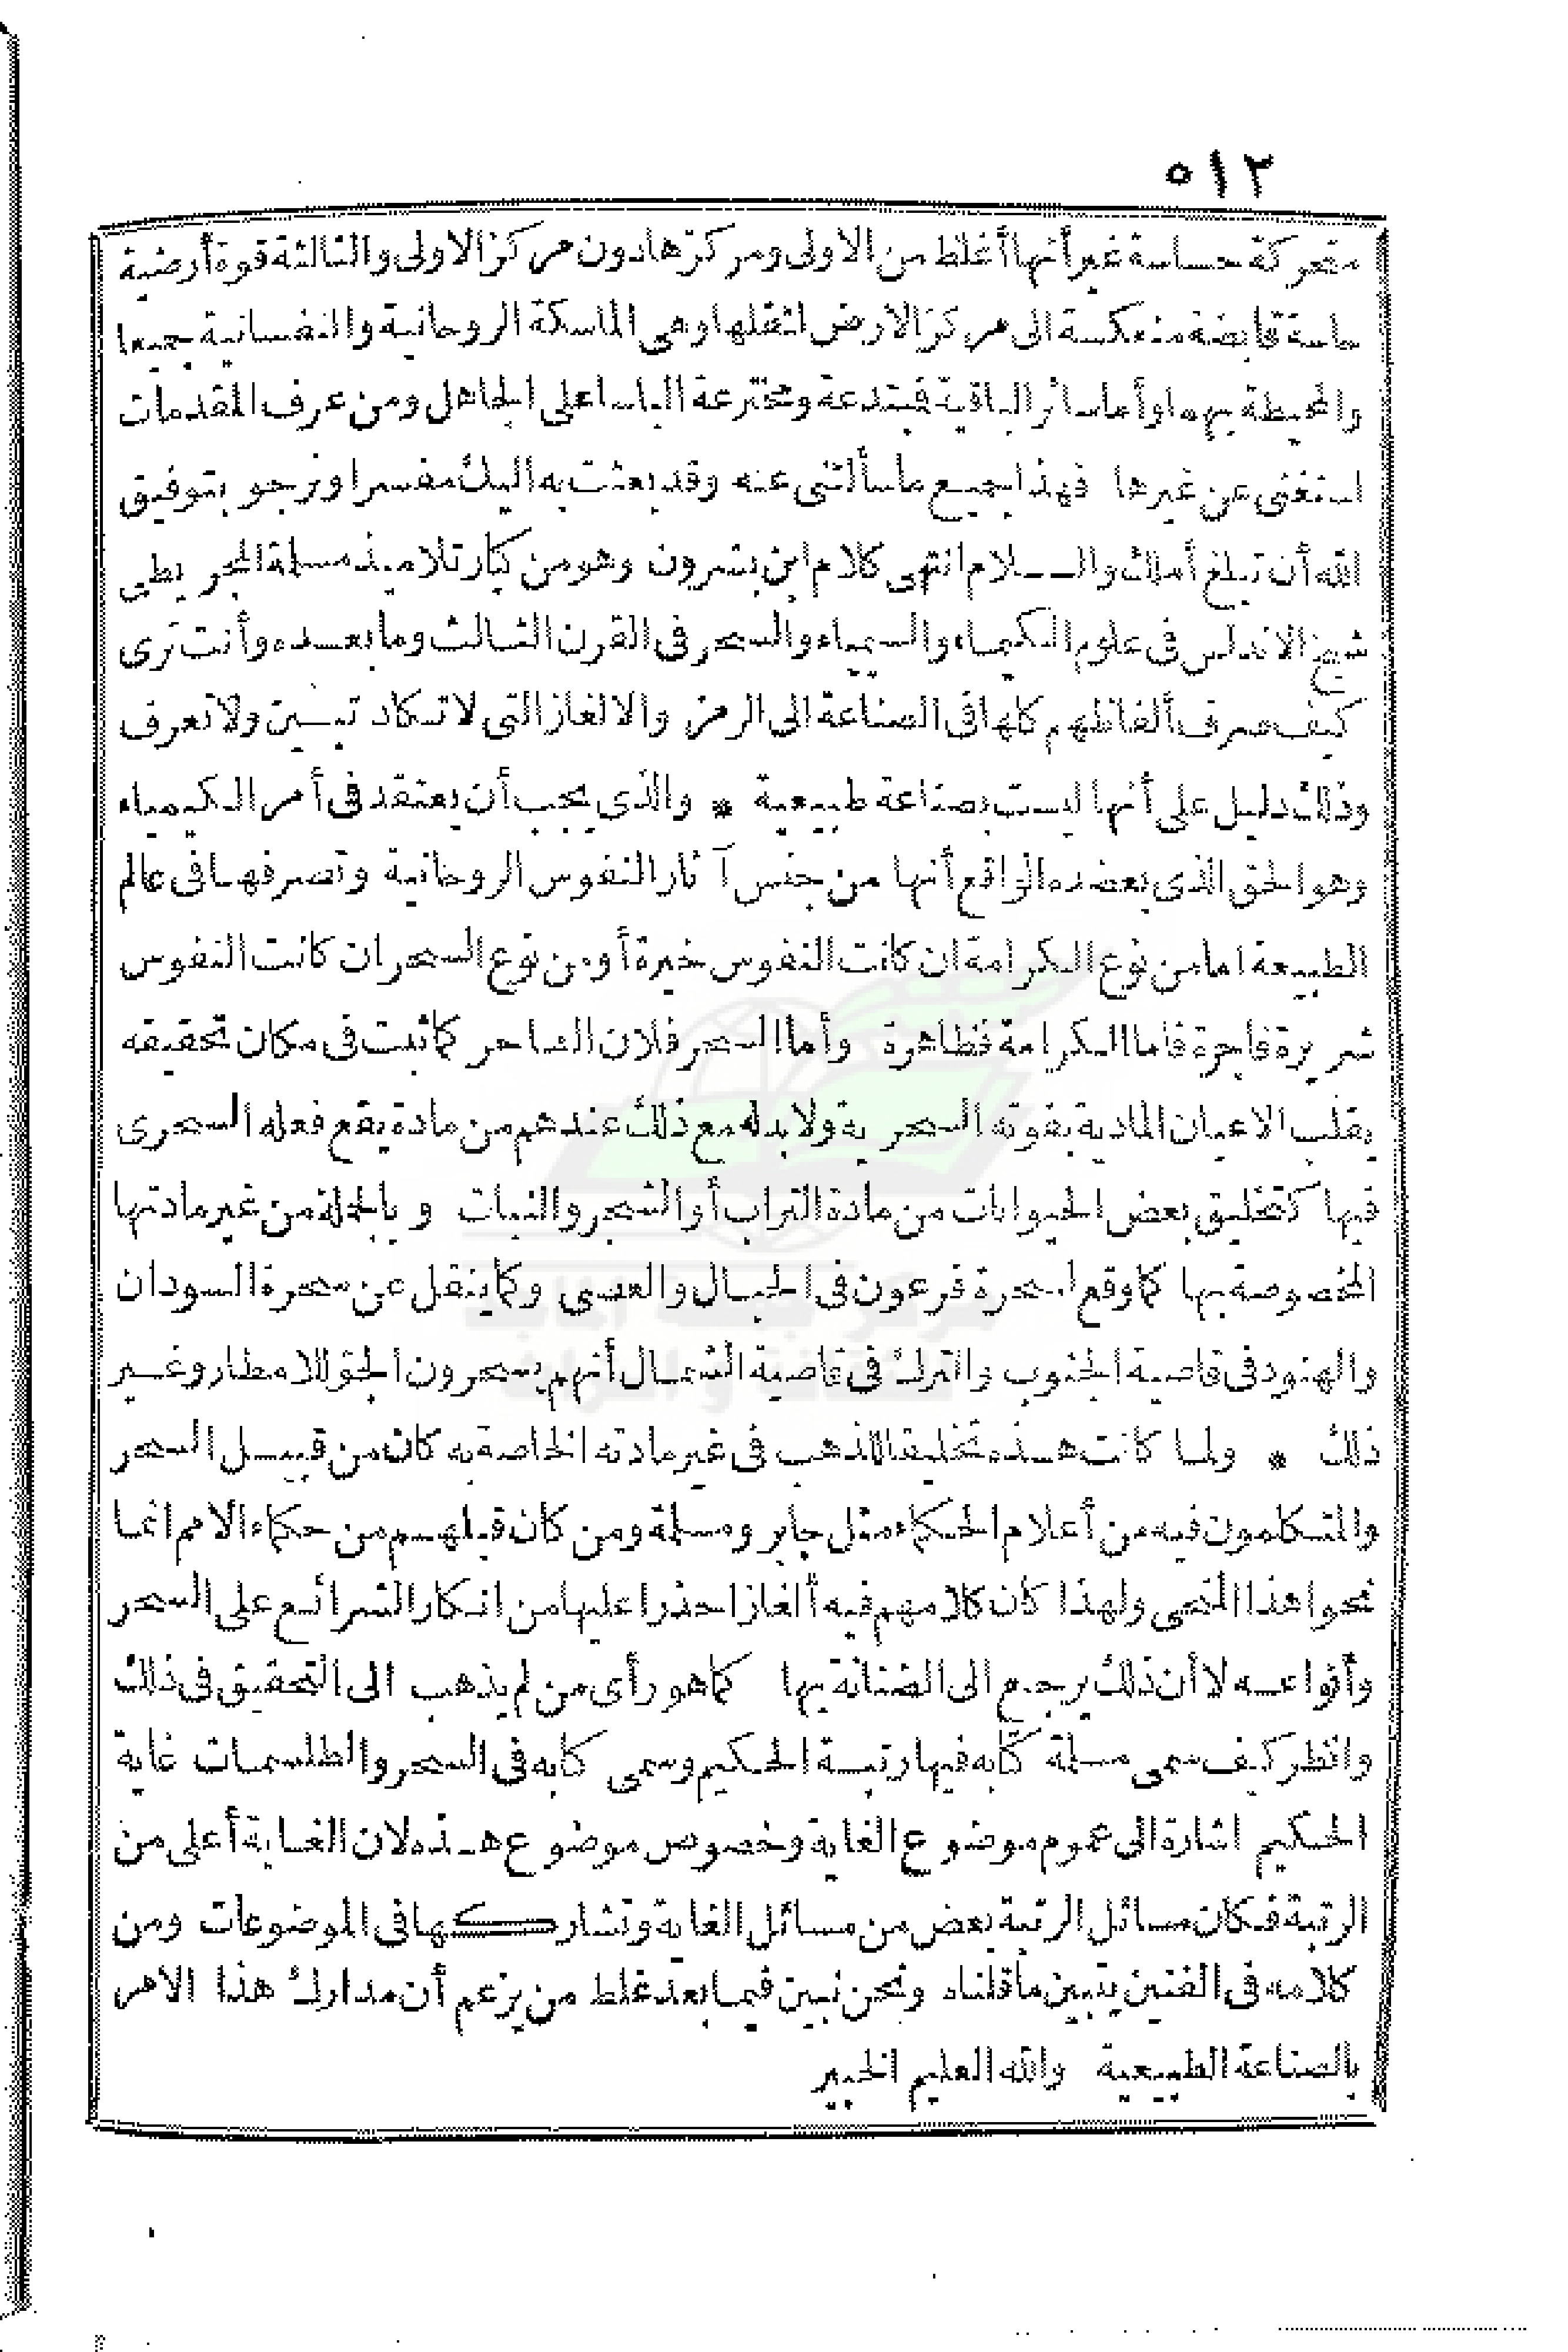 ٥١٢
متحركة حساسة غير أنها أغلظ من الاولى ومركزها دون مركز الاولى والثالثة قوة أرضية
حاسة قابضة منعكسة الى مركز الارض لثقلها وهى الماسكة الروحانية والنفسانية جميعا
والمحيطة بهما وأما سائر الباقية فمبتدعة ومخترعة الباسا على الجاهل ومن عرف المقدمات
استغنى عن غيرها فهذا جميع ما سألتنى عنه وقد بعثت به اليك مفسرا ونرجو بتوفيق
الله أن تبلغ أملك والسلام انتهى كلام ابن بشرون وهو من كبار تلاميذ مسلمة المجريطى
شيخ الاندلس فى علوم الكيمياء والسيمياء والسحر فى القرن الثالث وما بعده وأنت ترى
كيف صرف ألفاظهم كلها فى الصناعة الى الرمز والالغاز التى لا تكاد تبين ولا تعرف
وذلك دليل على أنها ليست بصناعة طبيعية * والذى يجب أن يعتقد فى أمر الكيمياء
وهو الحق الذى يعضده الواقع أنها من جنس آثار النفوس الروحانية وتصرفها فى عالم
الطبيعة اما من نوع الكرامة ان كانت النفوس خيرة أو من نوع السحر ان كانت النفوس
شريرة فاجرة فاما الكرامة فظاهرة وأما السحر فلان الساحر كما ثبت فى مكان تحقيقه
يقلب الاعيان المادية بقوته السحرية ولا بد له مع ذلك عندهم من مادة يقع فعله السحرى
فيها كتخليق بعض الحيوانات من مادة التراب أو الشجر والنبات وبالجملة من غير مادتها
المخصوصة بها كما وقع لسحرة فرعون فى الحبال والعصى وكما ينقل عن سحرة السودان
والهنود فى قاصية الجنوب والترك فى قاصية الشمال أنهم يسحرون الجو للامطار وغير
ذلك * ولما كانت هذه تخليقا للذهب فى غير مادته الخاصة به كان من قبيل السحر
والمتكلمون فيه من أعلام الحكماء مثل جابر ومسلمة ومن كان قبلهم من حكماء الامم انما
نحوا هذا المنحى ولهذا كان كلامهم فيه ألغازا حذرا عليها من انكار الشرائع على السحر
وأنواعه لا أن ذلك يرجع الى الضنانة بها كما هو رأى من لم يذهب الى التحقيق فى ذلك
وانظر كيف سمى مسلمة كتابه فيها رتبة الحكيم وسمى كتابه فى السحر والطلسمات غاية
الحكيم اشارة الى عموم موضوع الغاية وخصوص موضوع هذه لان الغاية أعلى من
الرتبة فكان مسائل الرتبة بعض من مسائل الغاية وتشاركها فى الموضوعات ومن
كلامه فى الفنين يتبين ما قلناه ونحن نبين فيما بعد غلط من يزعم أن مدارك هذا الامر
بالصناعة الطبيعية والله العليم الخبير